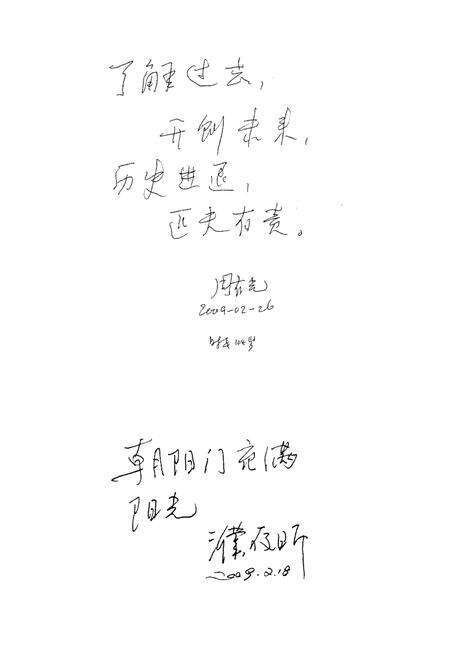 了解过去，
开创未来，
历史进退，
匹夫有责。
周有光
2009-02-26
时年104岁
朝阳门充满
阳光
2009.2.18